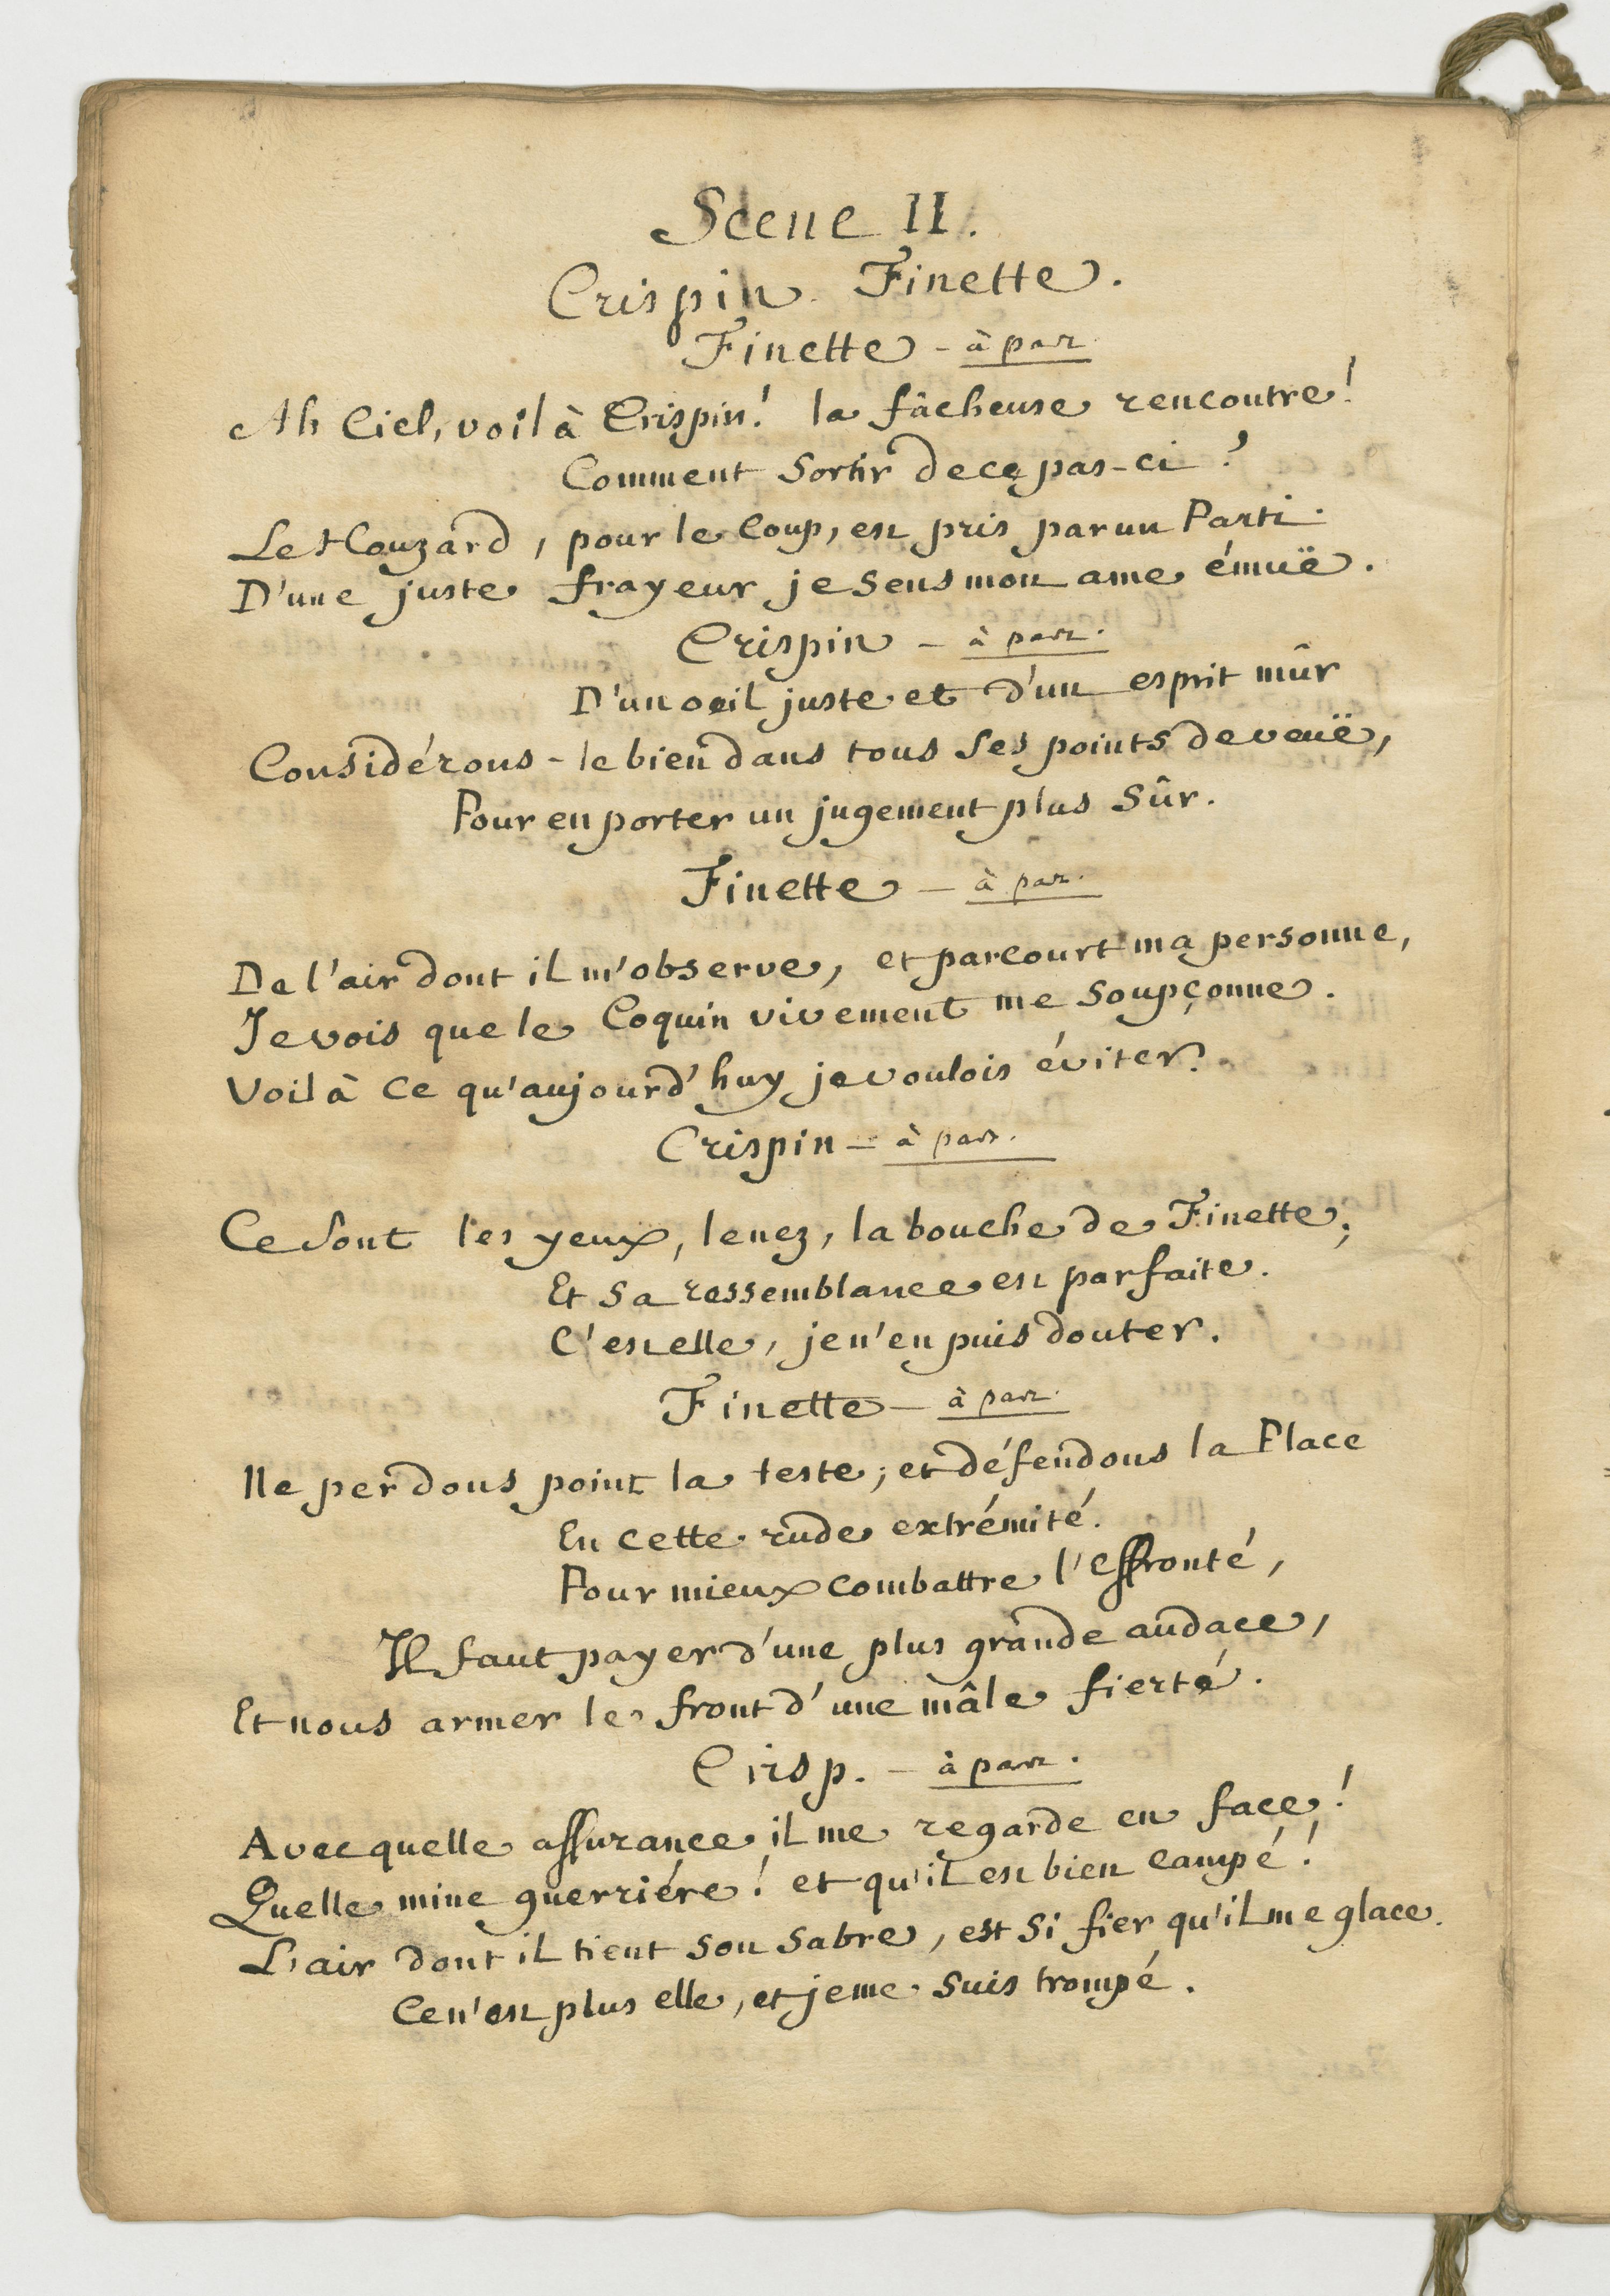 Scene II.
Crispin. Finette.
Finette - à part
Ah Ciel, voilà Crispin! la fâcheuse rencontre!
Comment Sortir de ce pas-ci?
Le Houzard, pour le Coup, est pris par un Parti.
D'une juste frayeur je sens mon ame émuë.
Crispin - à part.
D'un oeil juste et d'un esprit mûr
Considérons-le bien dans tous Ses points de veuë,
Pour en porter un jugement plus Sûr.
Finette - à part.
De l'air dont il m'observe, et parcourt ma personne,
Je vois que le Coquin vivement me Soupçonne.
Voilà Ce qu'aujourd'huy je voulois éviter.
Crispin - à part.
Ce Sont les yeux, le nez, la bouche de Finette;
Et Sa ressemblance est parfaite.
C'est elle, je n'en puis douter.
Finette - à part.
Ne perdons point la teste; et défendons la Place
En Cette rude extrémité.
Pour mieux combattre l'effronté,
Il faut payer d'une plus grande audace,
Et nous armer le front d'une mâle fierté.
Crisp. - à part.
Avec quelle assurance il me regarde en face!
Quelle mine guerriére! et qu'il est bien campé!
L'air dont il tient Son Sabre, est Si fier qu'il me glace.
Ce n'est plus elle, et je me Suis trompé.